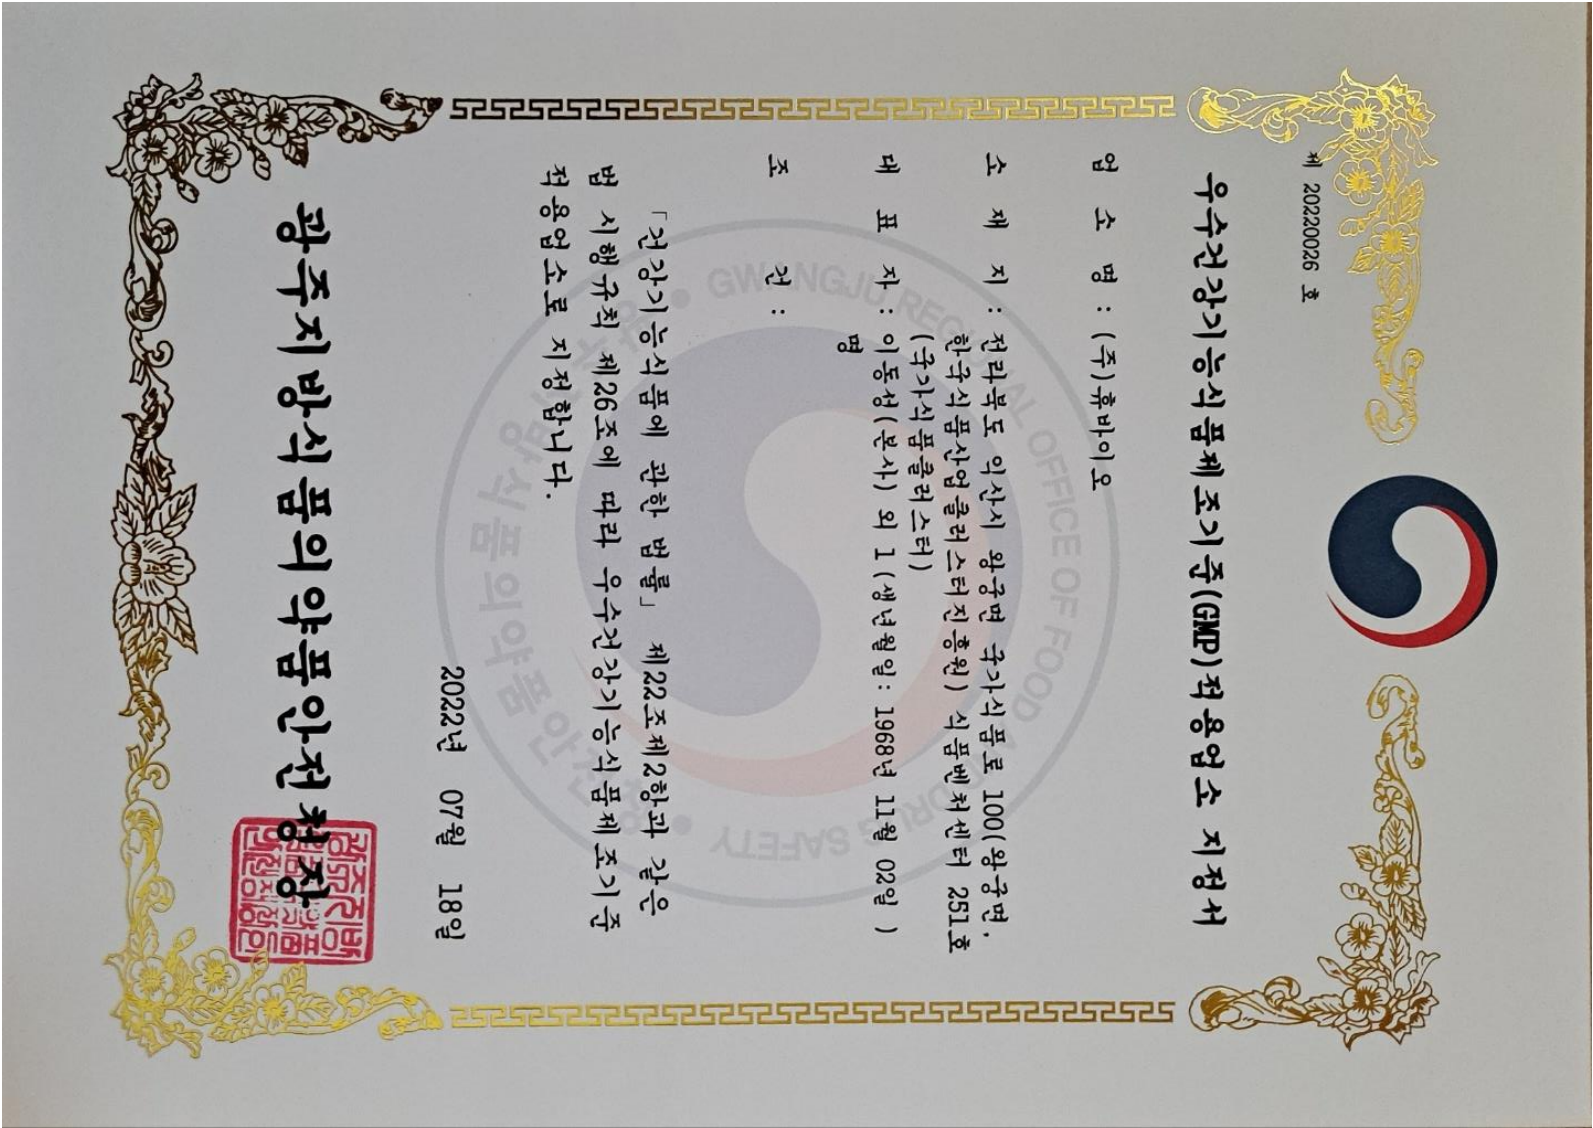 제 20220026 호
우수건강기능식품제조기준(GMP)적용업소 지정서
업 소 명 : (주)휴바이오
소 재 지 : 전라북도 익산시 왕궁면 국가식품로 100(왕궁면,
한국식품산업클러스터진흥원) 식품벤처센터 251호
(국가식품클러스터)
대 표 자 : 이동성(본사) 외 1 (생년월일: 1968년 11월 02일 )
명
조 건 :
「건강기능식품에 관한 법률」 제22조제2항과 같은
법 시행규칙 제26조에 따라 우수건강기능식품제조기준
적용업소로 지정합니다.
2022년 07월 18일
광주지방식품의약품안전청장
GWANGJU REGIONAL OFFICE OF FOOD AND DRUG SAFETY
광주지방식품의약품안전청